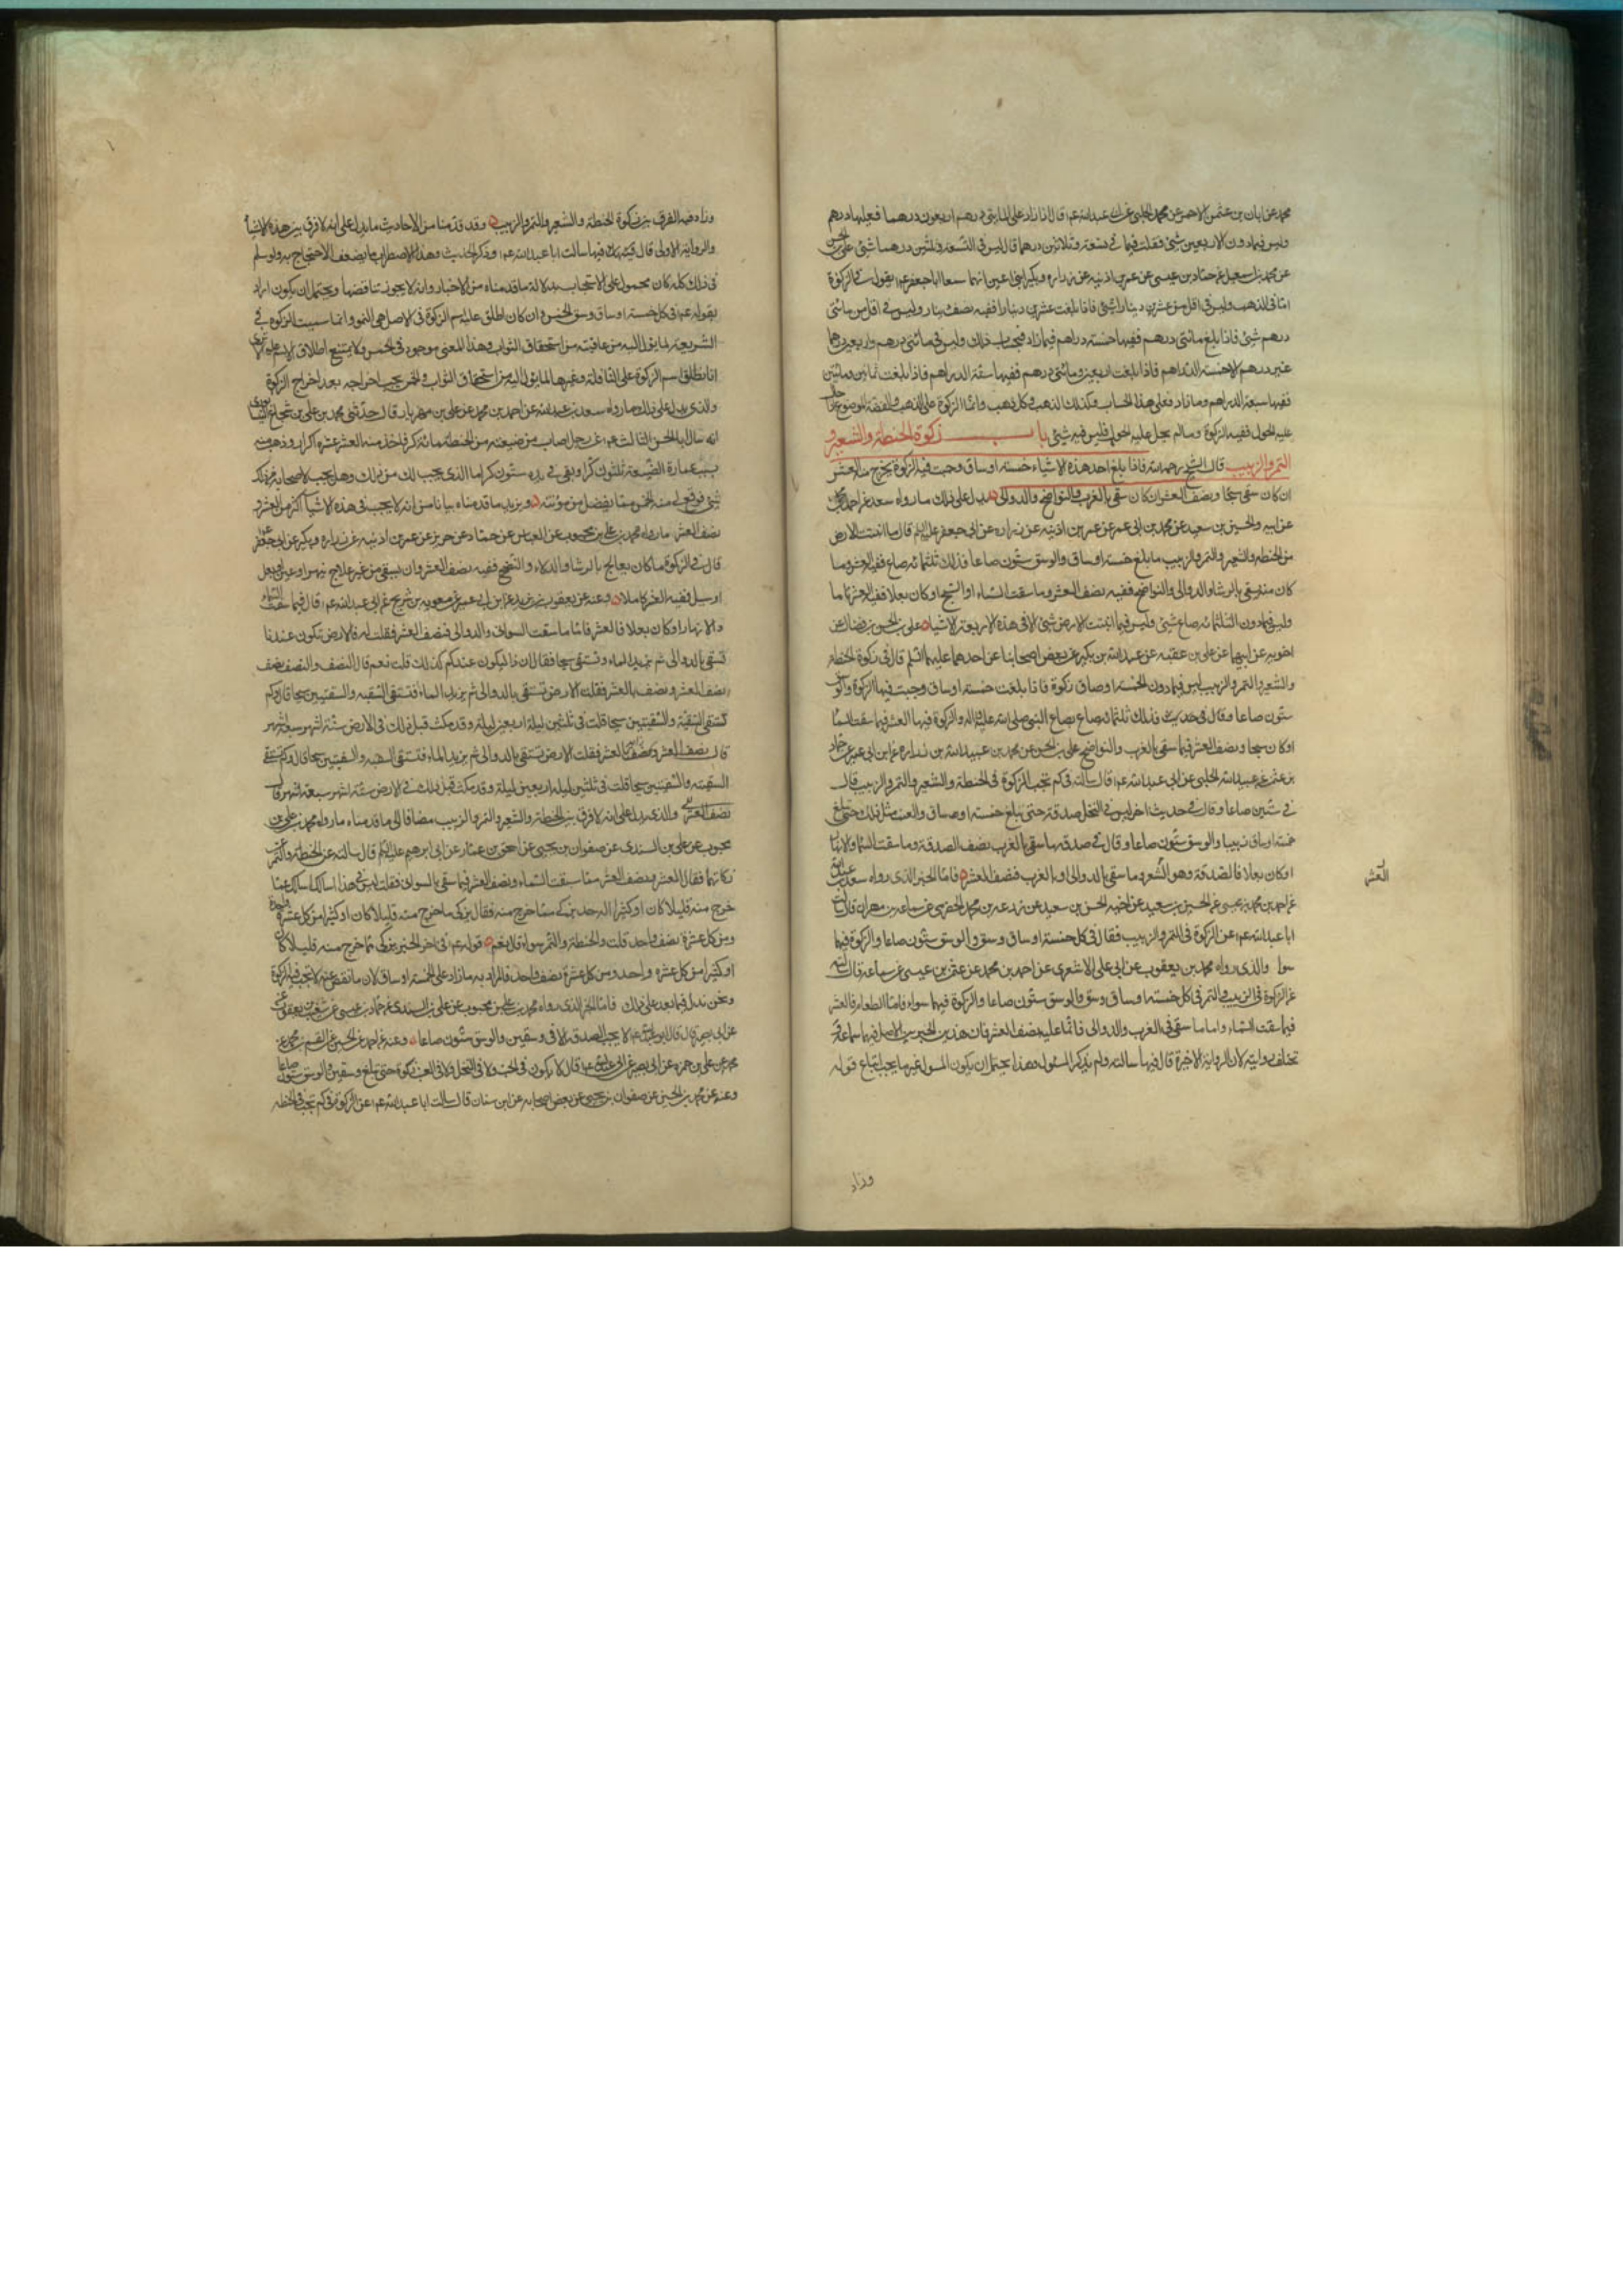 محمد عن ابان بن عثمن الاحمر عن محمد الحلبى عن ابى عبد الله ع م قال اذا زاد على المايتى درهم اربعون درهما فعليها درهم
وليس فيما دون الاربعين شئ فقلت فيما فى تسعة وثلاثين درهما قال ليس فى التسعة وثلثين درهما شئ على بن الحسن
عن محمد بن اسمعيل عن حماد بن عيسى عن عمر بن اذنيه عن زراره وبكير ابنى اعين انهما سمعا ابا جعفر ع م يقول فى الزكوة
اما فى الذهب وليس فى اقل من عشرين دينارا شئ فاذا بلغت عشرين دينارا ففيه نصف دينار وليس فى اقل من مائتى
درهم شئ فاذا بلغ مائتى درهم ففيها خمسه دراهم فيما زاد فبحساب ذلك وليس فى مائتى درهم واربعين درهما
غير درهم الا خمسة الدراهم فاذا بلغت اربعين ومائتى درهم ففيها ستة الدراهم فاذا بلغت ثمانين ومائتين
ففيها سبعة الدراهم وما زاد فعلى هذا الحساب وكذلك الذهب وكل ذهب وانما الزكوة على الذهب والفضة الموضوع اذا حال
عليه الحول ففيه الزكوة ومالم يحل عليه الحول فليس فيه شئ باب زكوة الحنطة والشعير و
التمر والزبيب قال الشيخ رحمه الله فاذا بلغ احد هذه الاشياء خمسة اوساق وجبت فيه الزكوة يخرج منه العشر
ان كان سقى سيحا ونصف العشر ان كان سقى بالغرب والنواضح والدوالى يدل على ذلك ما رواه سعد عن احمد بن محمد
عن ابيه والحسين بن سعيد عن محمد بن ابى عمير عن عمر بن اذنيه عن زراره عن ابى جعفر عليه السلم قال ما انبتت الارض
من الحنطه والشعير والتمر والزبيب ما بلغ خمسة اوساق والوسق ستون صاعا فذلك ثلثمائه صاع ففيه العشر وما
كان منه يسقى بالرشاء والدوالى والنواضح ففيه نصف العشر وما سقت السماء او السيح او كان بعلا ففيه العشر تاما
وليس فيما دون الثلثمائه صاع شئ وليس فيما انبتت الارض شئ الا فى هذه الاربعة الاشياء على بن الحسن بن فضال عن
اخويه عن ابيهما عن على بن عقبه عن عبد الله بن بكير عن بعض اصحابنا عن احدهما عليهما السلم قال فى زكوة الحنطه
والشعير والتمر والزبيب ليس فيما دون الخمسة اوساق زكوة فاذا بلغت خمسة اوساق وجبت فيها الزكوة والوسق
ستون صاعا وقال فى حديث فذلك ثلثمائه صاع بصاع النبى صلى الله عليه واله والزكوة فيها العشر فيما سقت السما
او كان سيحا ونصف العشر فيما سقى بالغرب والنواضح على بن الحسن عن محمد بن عبيد الله بن زراره عن ابن ابى عمير عن حماد
بن عثمن عن عبيد الله الحلبى عن ابى عبد الله ع م قال سالته فى كم تجب الزكوة فى الحنطة والشعير والتمر والزبيب قال
فى ستين صاعا وقال فى حديث اخر ليس فى النخل صدقة حتى يبلغ خمسة اوساق والعنب مثل ذلك حتى يبلغ
خمسة اوساق زبيبا والوسق ستون صاعا وقال فى صدقه ما سقى بالغرب نصف الصدقة وما سقت السما والانهار
او كان بعلا فالصدقة وهو العشر وما سقى بالدوالى او بالغرب فنصف العشر فاما الخبر الذى رواه سعد بن عبد الله
عن احمد بن محمد بن عيسى عن الحسين بن سعيد عن اخيه الحسن بن سعيد عن زرعه بن محمد الحضرمى عن سماعه بن مهران قال سالت
ابا عبد الله ع م عن الزكوة فى التمر والزبيب فقال فى كل خمسة اوساق وسق والوسق ستون صاعا والزكوة فيهما
سوا والذى رواه محمد بن يعقوب عن ابى على الاشعرى عن احمد بن محمد عن عثمن بن عيسى عن سماعه قال سالته
عن الزكوة فى الزبيب والتمر فى كل خمسة اوساق وسق والوسق ستون صاعا والزكوة فيهما سواء فاما الطعام فالعشر
فيما سقت السماء واما ما سقى فى الغرب والدوالى فانما عليه نصف العشر فان هذين الخبرين الاصل فيهما سماعة و
تختلف روايته لان الرواية الاخيرة قال فيها سالته ولم يذكر المسئول وهذا يحتمل ان يكون المسول غير ما يجب اتباع قوله
العشر
وزاد
وزاد فيه الفرق بين زكوة الحنطة والشعير والتمر والزبيب وقد قدمنا من الاحاديث ما يدل على انه لا فرق بين هذه الاشيا
والرواية الاولى قال فيها سالت ابا عبد الله ع م وذكر الحديث وهذا الاضطراب مما يضعف الاحتجاج به ولو سلم
فى ذلك كله كان محمولا على الاستحباب بدلالة ما قدمناه من الاخبار وانه لا يجوز تناقضها ويحتمل ان يكون اراد
بقوله ع م فى كل خمسة اوساق وسق الخمس وان كان اطلق عليه اسم الزكوة فى الاصل هى النمو وانما سميت الزكوه فى
الشريعة لما يؤل اليه من عاقبته من استحقاق الثواب وهذا المعنى موجود فى الخمس ولا يمتنع اطلاق الاسم عليه
انا نطلق اسم الزكوة على النافلة وغيرها لما يؤل اليه من استحقاق الثواب والخمس يجب اخراجه بعد اخراج الزكوة
والذى يدل على ذلك ما رواه سعد بن عبد الله عن احمد بن محمد عن على بن مهزيار قال حدثنى محمد بن على بن شجاع النيسابورى
انه سال ابا الحسن الثالث ع م عن رجل اصاب من ضيعته من الحنطه مائة كر فاخذ منه العشر عشره اكرار وذهب منه
بسبب عمارة الضيعة ثلثون كرا وبقى فى يده ستون كرا ما الذى يجب لك من ذلك وهل يجب لاصحابه من ذلك
شئ فوقع لى منه الخمس مما يفضل من مونته ويزيد ما قدمناه بيانا من انه لا يجب فى هذه الاشيا اكثر من العشر و
نصف العشر ما رواه محمد بن على بن محبوب عن العباس عن حماد عن حريز عن عمر بن اذنيه عن زراره وبكير عن ابى جعفر
قال فى الزكوة ما كان يعالج بالرشا والدلاء والنضح ففيه نصف العشر وان يسقى من غير علاج بنهر او عين او بعل
او سيل ففيه العشر كاملا وعنه عن يعقوب بن يزيد عن ابن ابى عمير عن معويه بن شريح عن ابى عبد الله ع م قال فيما سقت السماء
والانهار او كان بعلا فالعشر فاما ما سقت السوانى والدوالى فنصف العشر فقلت له فالارض تكون عندنا
تسقى بالدوالى ثم يزيد الماء وتسقى سيحا فقال ان ذا ليكون عندكم كذلك قلت نعم قال النصف والنصف نصف
بنصف العشر ونصف بالعشر فقلت الارض تسقى بالدوالى ثم يزيد الماء فتسقى السقيه والسقيتين سيحا قال وكم
تسقى السقية والسقيتين سيحا قلت فى ثلثين ليلة اربعين ليلة وقد مكث قبل ذلك فى الارض ستة اشهر سبعة اشهر
قال نصف العشر
نصف العشر والذى يدل على انه لا فرق بين الحنطة والشعير والتمر والزبيب مضافا الى ما قدمناه ما رواه محمد بن على بن
محبوب عن على بن السندى عن صفوان بن يحيى عن اسحق بن عمار عن ابى ابرهيم عليه السلم قال سالته عن الحنطة والتمر عن
زكاتهما فقال العشر ونصف العشر العشر مما سقت السماء ونصف العشر فيما سقى بالسوانى فقلت ليس عن هذا اسالك انما اسالك عما
خرج منه قليلا كان او كثيرا اله حد يزكى مما خرج منه فقال يزكى ما خرج منه قليلا كان او كثيرا من كل عشرة واحدا
ومن كل عشرة نصف واحد قلت والحنطة والتمر سواء قال نعم قوله ع م فى اخر الخبر يزكى ما خرج منه قليلا كان
او كثيرا من كل عشره واحد ومن كل عشرة نصف واحد فالمراد به ما زاد على الخمسة اوساق لان ما نقص عنه لا تجب فيه الزكوة
ونحن ندل فيما بعد على ذلك فاما الخبر الذى رواه محمد بن على بن محبوب عن على بن السندى عن حماد بن عيسى عن شعيب بن يعقوب
عن ابى بصير قال قال ابو عبد الله ع م لا يجب الصدقة الا فى وسقين والوسق ستون صاعا وعنه عن احمد عن الحسين عن القسم بن محمد عن
محمد عن على بن حمزه عن ابى بصير عن ابى عبد الله ع م قال لا يكون فى الحب ولا فى النخل ولا فى العنب زكوة حتى يبلغ وسقين والوسق ستون صاعا
وعنه عن محمد بن الحسين عن صفوان بن يحيى عن بعض اصحابه عن ابن سنان قال سالت ابا عبد الله ع م عن الزكوة فى كم تجب فى الحنطه